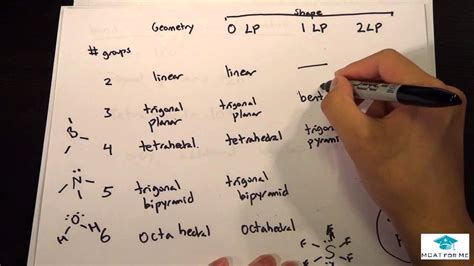 Shape
Geometry 0 LP 1 LP 2 LP
# groups
2 linear linear —
3 trigonal planar trigonal planar bent
4 tetrahedral. tetrahedal trigonal pyramid
5 trigonal bipyramid trigonal bipyramid
6 octahedal octahedral
B
N
H O H
F F
F S F
MCAT FOR ME